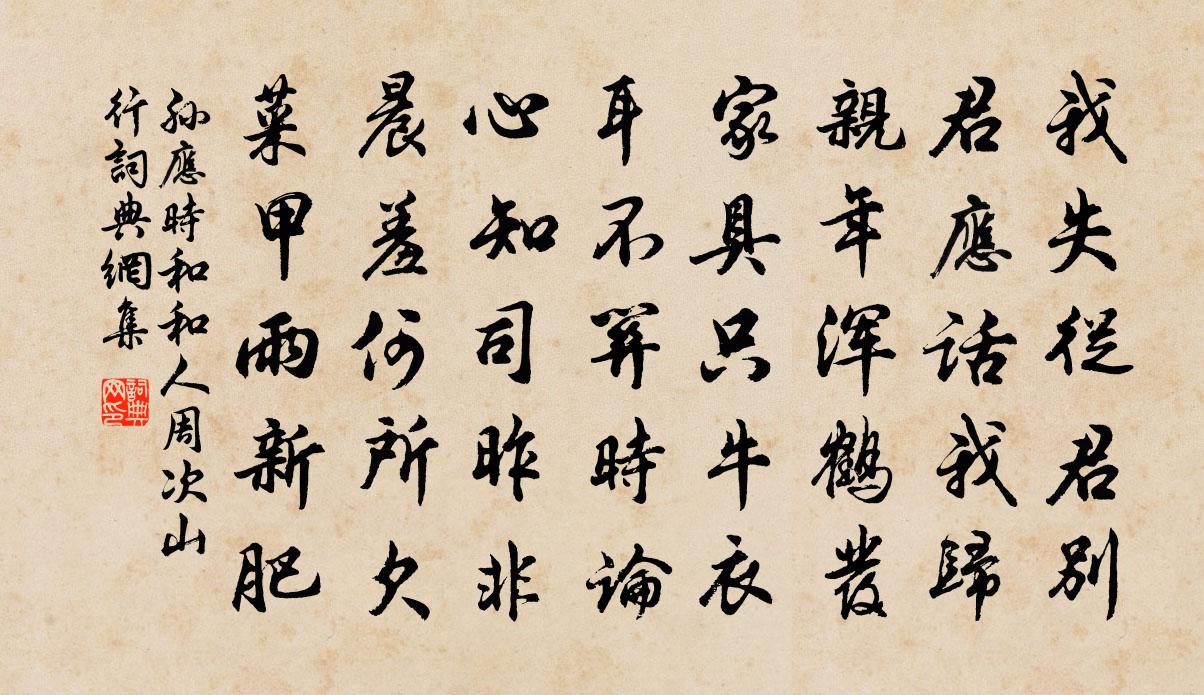 我失從君別
君應話我歸
親年渾鶴發
家具只牛衣
耳不關時論
心知司昨非
晨羞何所欠
菜甲雨新肥
孫應時和和人周次山
行詞典網集
詞典
网印